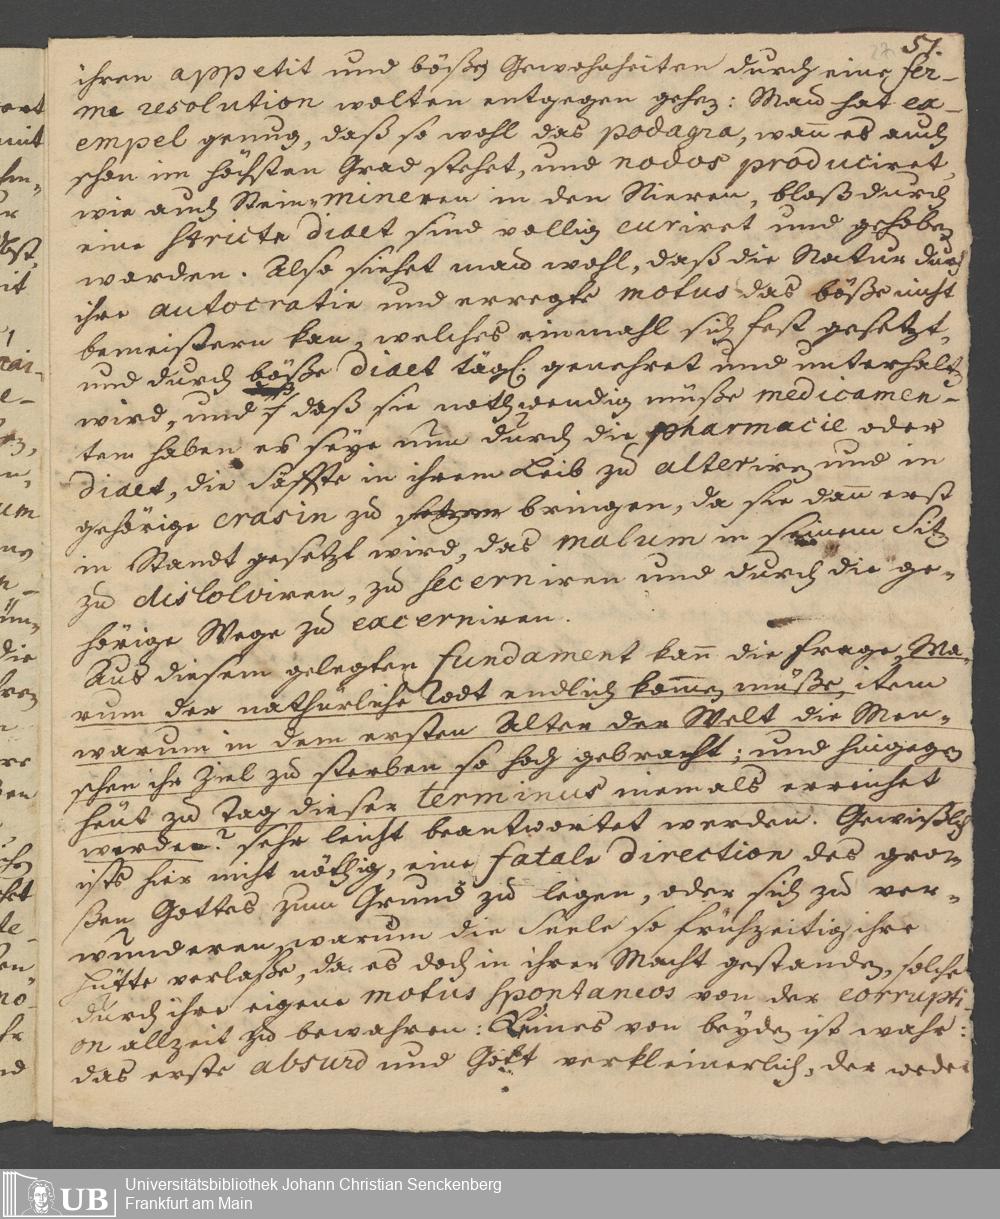 51.
ihren appetit und bößen Gewohnheiten durch eine fer-
me resolution wolten entgegen gehen: Man hat ex-
empel genug, daß so wohl das podagra, wañ es auch
schon im höchsten Grad stehet, und nodos produciret,
wie auch Stein-mineren in den Nieren, bloß durch
eine stricte diaet sind vollig curiret und gehoben
worden. Also siehet man wohl, daß die Natur durch
ihre autocratie und erregte motus das böße nicht
bemeistern kan, welches einmahl sich fest gesetzt,
und durch böße diaet tägl. genehret und unterhalten
wird, und daß sie nothwendig müße medicamen-
tem haben es seye nun durch die pharmacie oder
diaet, die Säffte in ihrem Leib zu alteriren und in
gehörige crasin zu setzen bringen, da sie dañ erst
in Standt gesetzt wird, das malum in seinem Sitz
zu dissolviren, zu secerniren und durch die ge-
hörige Wege zu excerniren.
Aus diesem gelegten fundament kañ die Frage, Wa-
rum der nathürliche Todt endlich kom̄en müße, item
warum in dem ersten Alter der Welt die Men-
schen ihr Ziel zu sterben so hoch gebracht; und hingegen
heut zu Tag dieser terminus niemals erreichet
werden? sehr leicht beantwortet werden. Gewißlich
ists hier nicht nöthig, eine fatale direction des gro-
ßen Gottes zum Grund zu legen, oder sich zu ver-
wunderen, warum die Seele so frühzeitig ihre
Hütte verlaße, da es doch in ihrer Macht gestanden, solche
durch ihre eigene motus spontaneos von der corrupti-
on allzeit zu bewahren: Keines von beyden ist wahr:
das erste absurd und Gott verkleinerlich, der weder
UB
Universitätsbibliothek Johann Christian Senckenberg
Frankfurt am Main